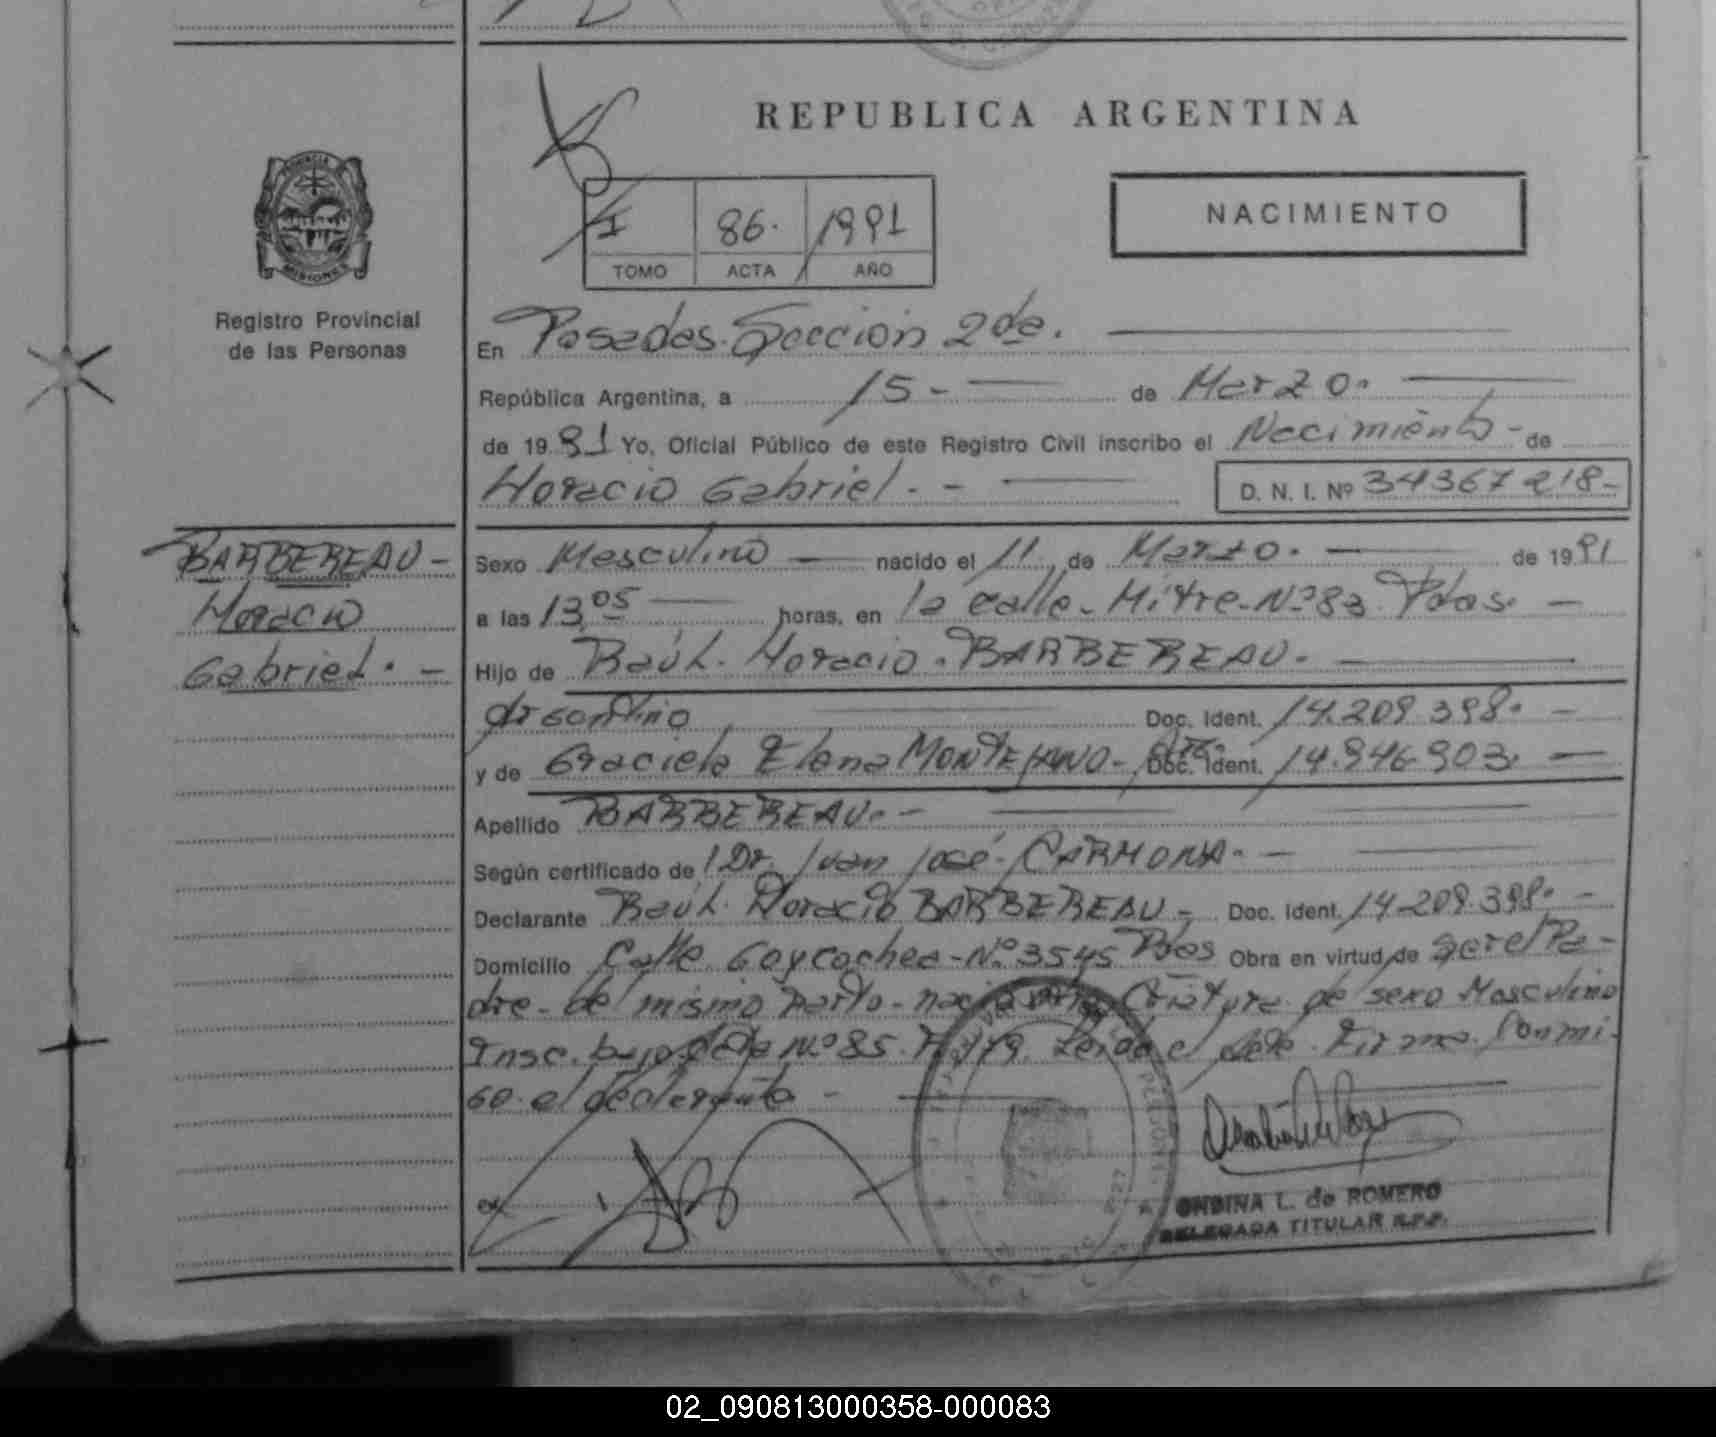 REPUBLICA ARGENTINA
NACIMIENTO
I 86. 1991
TOMO ACTA AÑO
PROVINCIA
MISIONES
Registro Provincial
de las Personas
En Posadas. Sección 2da.
República Argentina, a 15 - de Marzo.
de 1991 Yo, Oficial Público de este Registro Civil inscribo el Nacimiento - de
Horacio Gabriel. - D. N. I. Nº 34367218-
BARBEREAU -
Horacio
Gabriel. -
Sexo Masculino nacido el 11 de Marzo. de 1991
a las 13,05 horas, en la calle - Mitre - Nº 83 Pdas. -
Hijo de Raúl. Horacio. BARBEREAU.
argentino Doc. Ident. 14.209.398. -
y de Graciela Elena MONTEJANO - Doc. Ident. 14.946.903.
Apellido BARBEREAU. -
Según certificado de l Dr. Juan José CARMONA. -
Declarante Raúl Horacio BARBEREAU - Doc. Ident. 14.209.398. -
Domicilio Calle Goycochea - Nº 3545 Pdas Obra en virtud de ser el Pa-
dre - del mismo parto - nació otra Criatura de sexo Masculino
Insc. bajo Acta Nº 85. Leída el Acta Firma Conmi-
go el declarante -
ONDINA L. de ROMERO
DELEGADA TITULAR R.P.P.
02_090813000358-000083